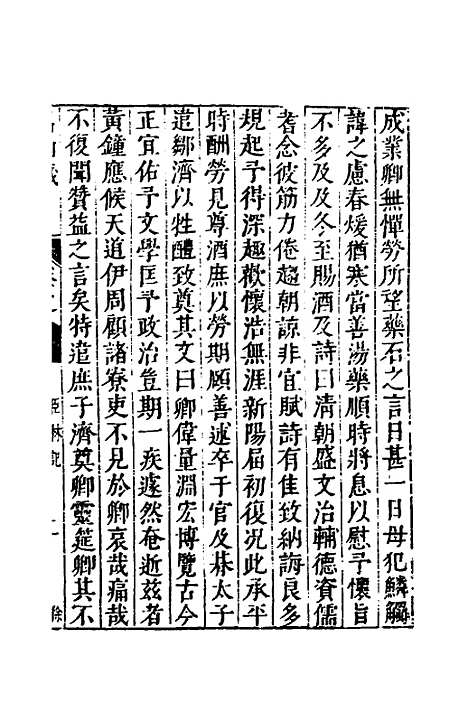 成業卿無憚勞所望藥石之言日甚一日毋犯鱗觸
諱之慮春煖猶寒當善湯藥順時將息以慰予懷旨
不多及及冬至賜酒及詩曰清朝盛文治輔德資儒
耆念彼筋力倦趨朝諒非宜賦詩有佳致納誨良多
規起予得深趣歡懷浩無涯新陽届初復况此承平
時酬勞見尊酒庶以勞期願善述卒于官及葬太子
遣鄒濟以牲醴致奠其文曰卿偉量淵宏博覽古今
正宜佑予文學匡予政治豈期一疾遽然奄逝兹者
黃鐘應候天道伊周顧諸寮吏不見於卿哀哉痛哉
不復聞贊益之言矣特遣庶子濟奠卿靈筵卿其不